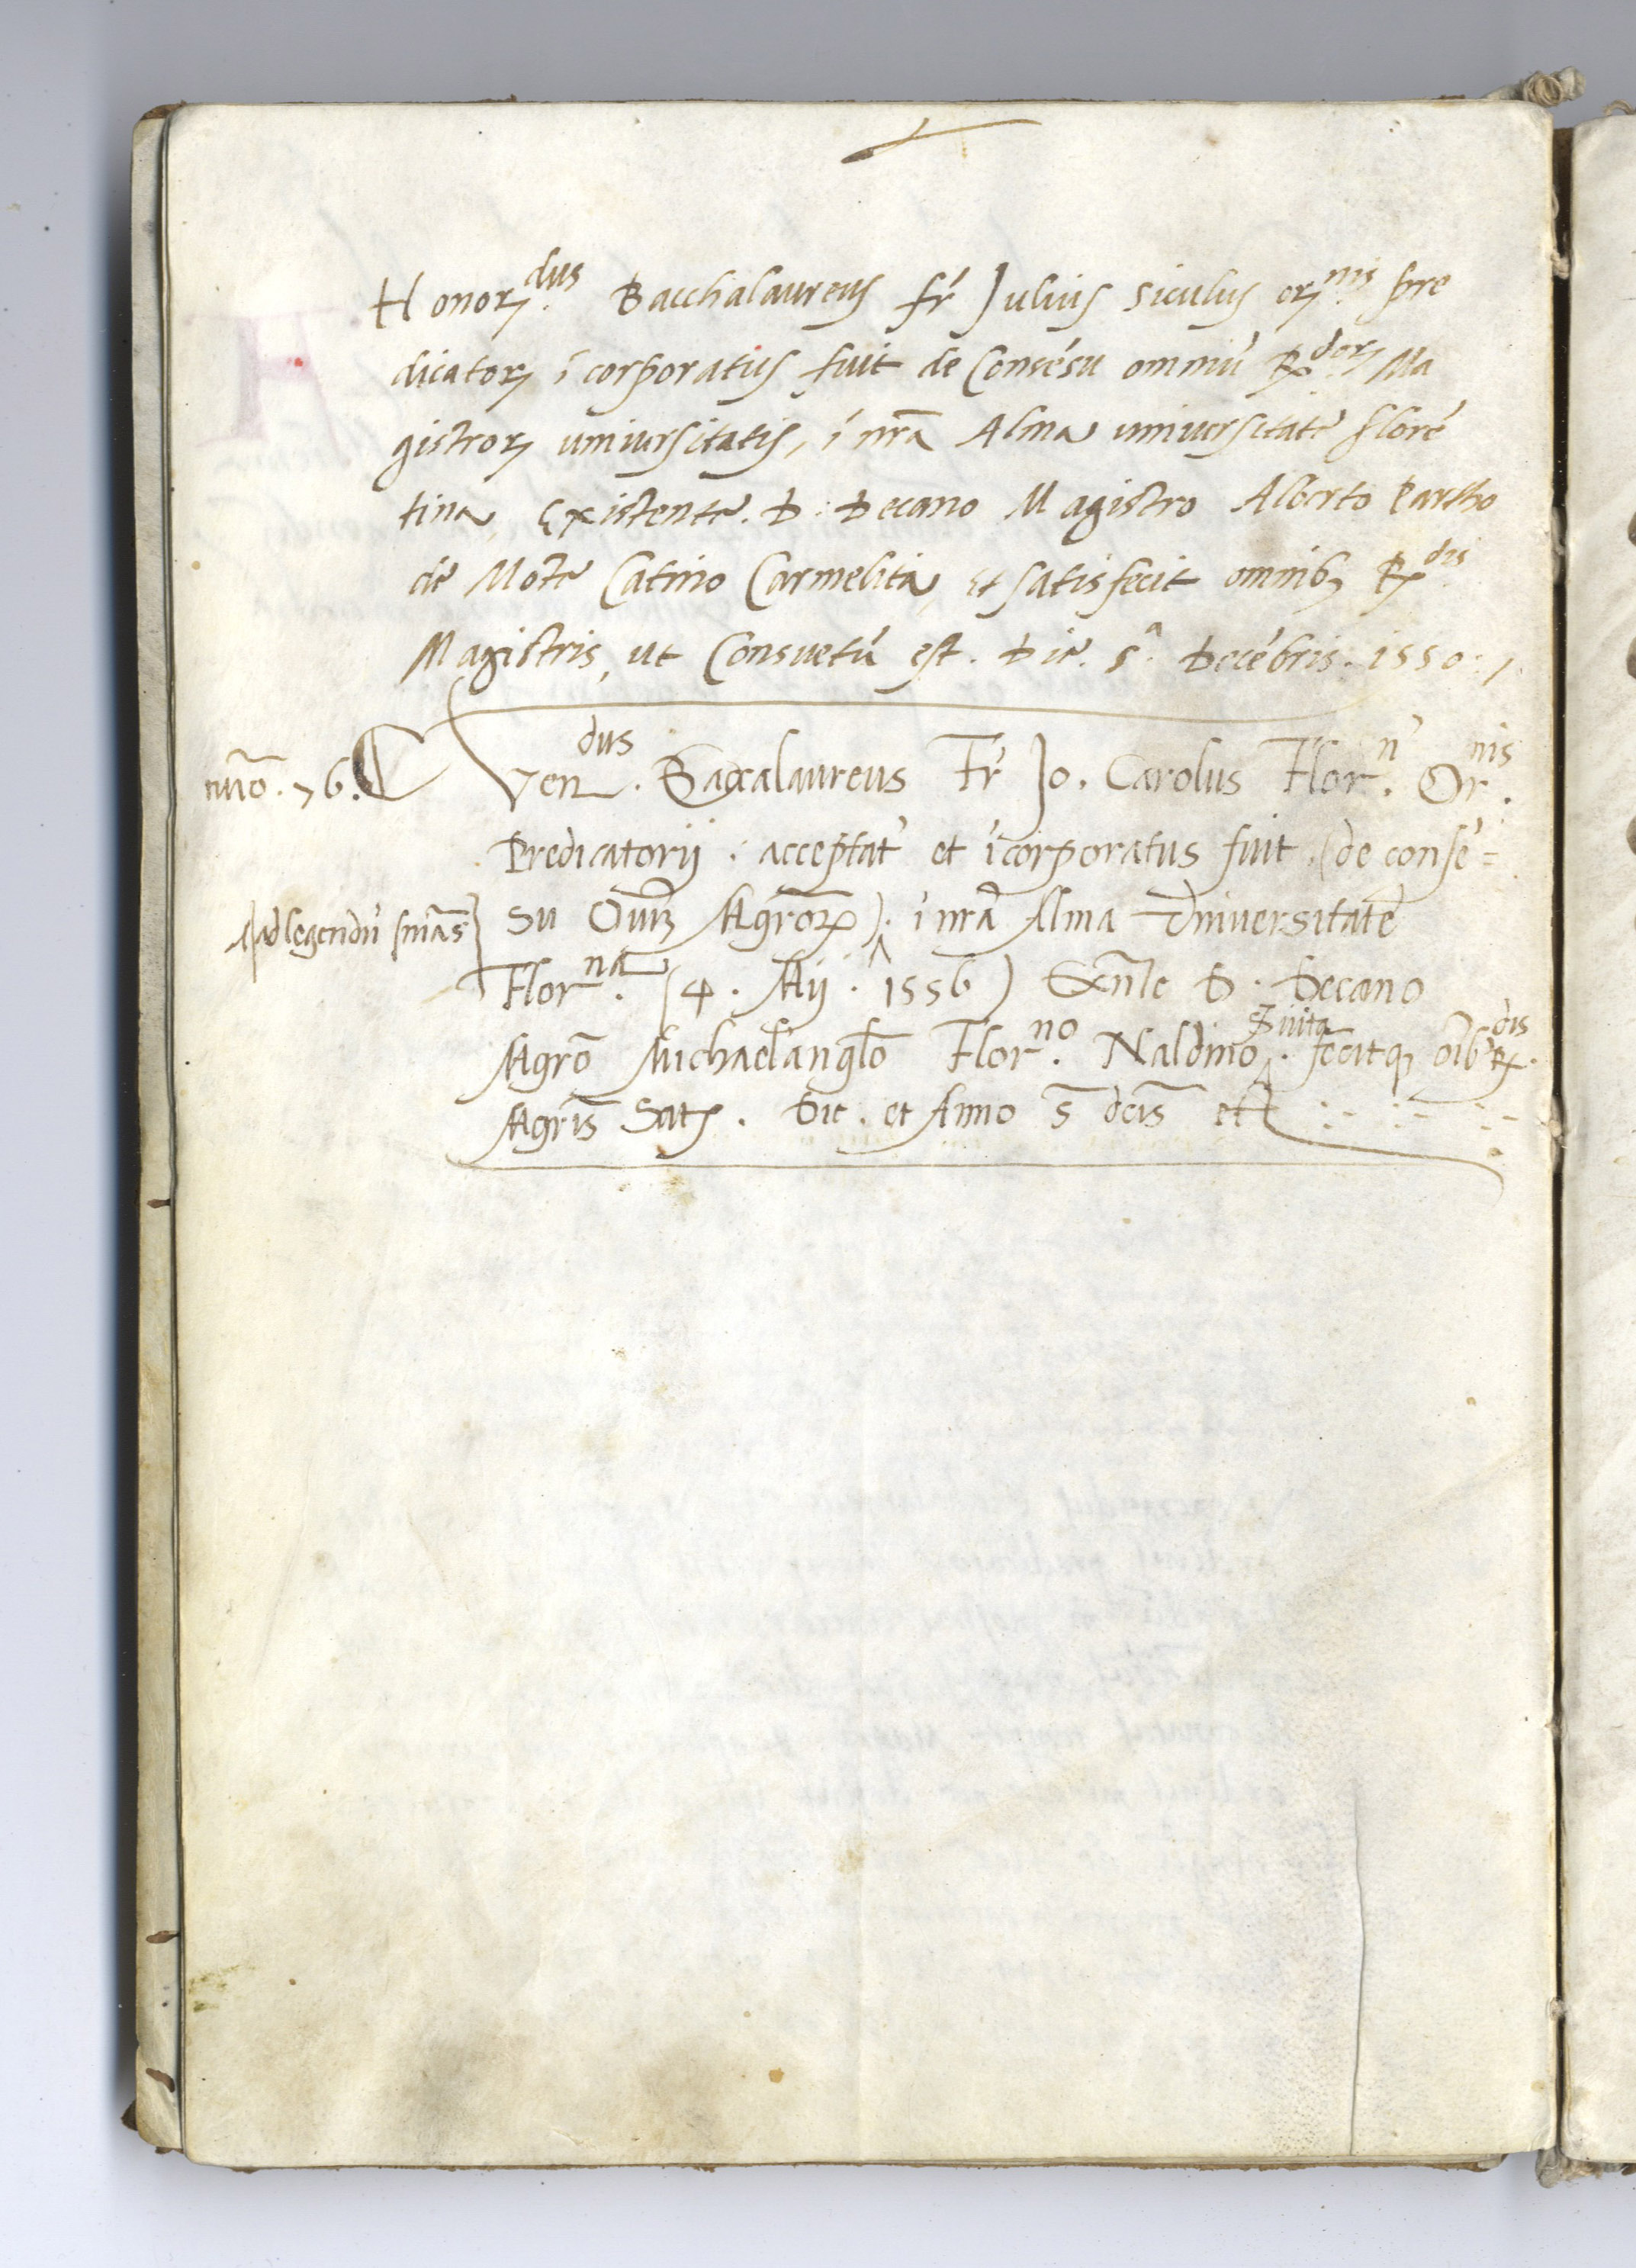 Honor.dus Bacchalaureus fr̃ Julius Siculus or.nis pre
dicator ĩcorporatus fuit de Consẽsu omniũ R.dor Ma
gistror universitatis, ĩ nr̃a Alma universitate florẽ
tina, Existente. D. Decano Magistro Alberto
de Mõte Catino Carmelita, et satisfecit omnib; R.dis
Magistris, ut Consuetũ est. Die. 5ᵃ. Decẽbris. 1550.
nũo. 76. Ven.dus Baccalaureus Fr̃ Jo. Carolus Flor.n Or.nis
Predicatorii. acceptat' et ĩcorporatus fuit (de consẽ=
Ad legendũ sñias
su Oium Mgror̃). ĩ nr̃a Alma Universitate
Flor.na (4. Mii. 1556) Exñte D. Decano
Mgro Michaelangl̃o Flor.no Naldino. fecitq; oib' R.dis
Mgris̃ Satis. Die. et Anno s̃ dcis̃ et